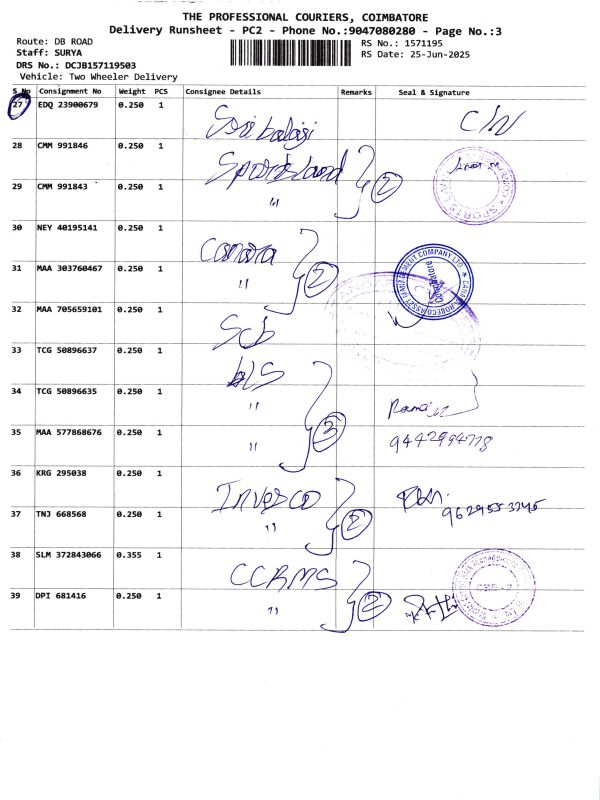 THE PROFESSIONAL COURIERS, COIMBATORE
Delivery Runsheet - PC2 - Phone No.:9047080280 - Page No.:3
Route: DB ROAD
Staff: SURYA
DRS No.: DCJB157119503
Vehicle: Two Wheeler Delivery
RS No.: 1571195
RS Date: 25-Jun-2025
S No Consignment No Weight PCS Consignee Details Remarks Seal & Signature
27 EDQ 23900679 0.250 1 Sri balaji C/N
28 CMM 991846 0.250 1 Sportsland
29 CMM 991843 0.250 1 " 2
30 NEY 40195141 0.250 1 Canara
31 MAA 303760467 0.250 1 " 2
32 MAA 705659101 0.250 1 Scb
33 TCG 50896637 0.250 1 bLS
34 TCG 50896635 0.250 1 "
35 MAA 577868676 0.250 1 " 3 9442994778
36 KRG 295038 0.250 1 Invesco
37 TNJ 668568 0.250 1 " 2 9629553245
38 SLM 372843066 0.355 1 CCRMS
39 DPI 681416 0.250 1 " 2